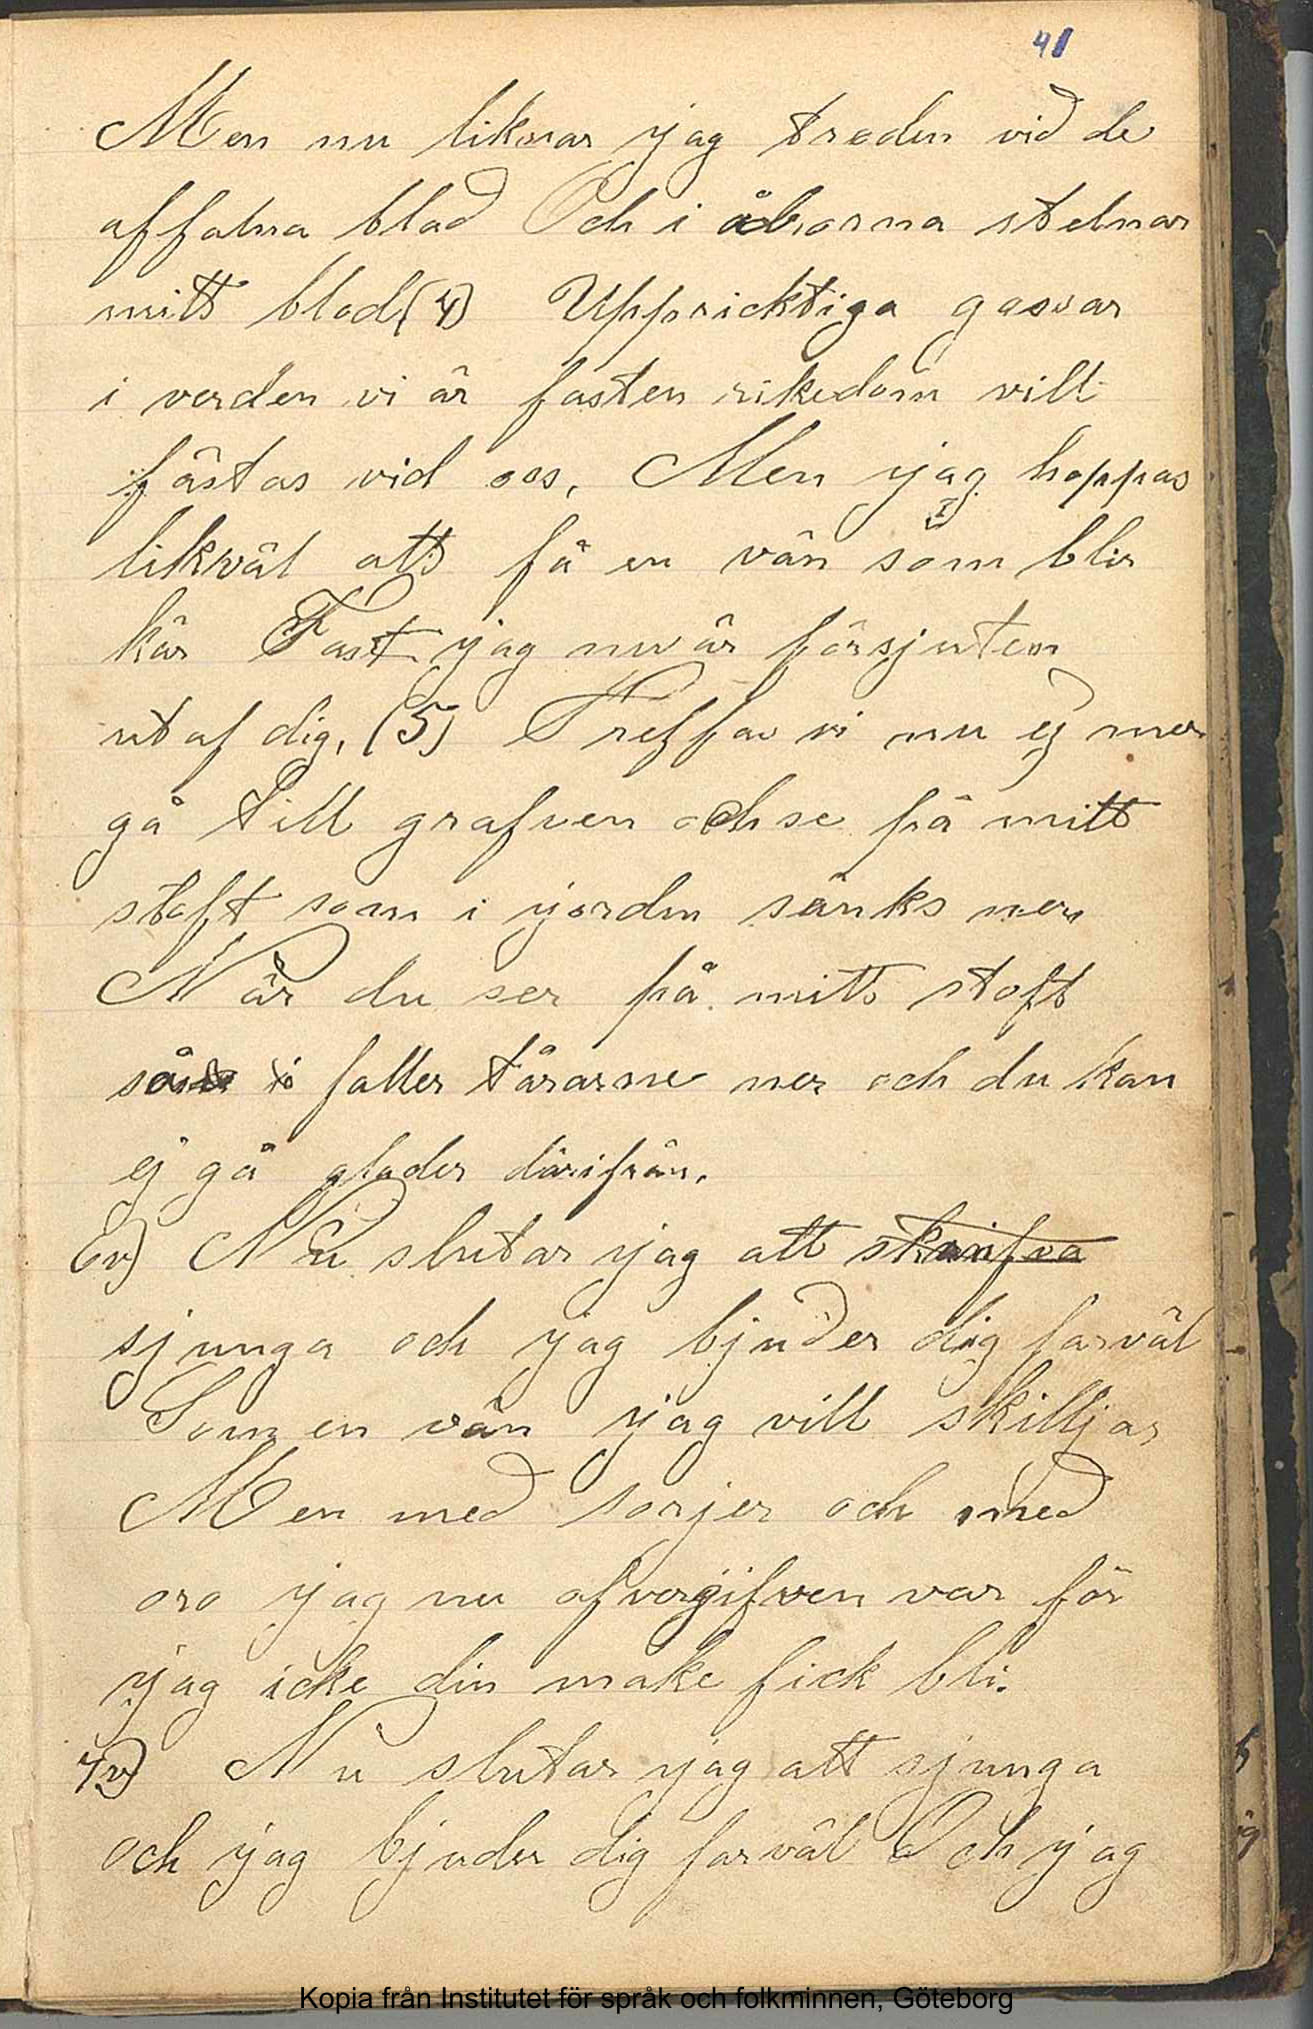 41
Men nu liknar jag träden vid de
affalna blad Och i ådrorna stelnar
mitt blod (4) Uppricktiga gossar
i verden vi är fasten rikedom vill
fästas vid oss, Men jag hoppas
likväl att få en vän som blir
kär Fast jag nu är försjuten
utaf dig, (5) Treffas vi nu ej mer
gå till grafven och se på mitt
stoft som i jorden sänks ner
När du ser på mitt stoft
så faller tårarne ner och du kan
ej gå glader därifrån.
6v) Nu slutar jag att skrifva
sjunga och jag bjuder dig farväl
Som en vän jag vill skiljas
Men med sorjer och med
oro jag nu afvergifven var för
jag icke din make fick bli.
7v) Nu slutar jag att sjunga
och jag bjuder dig farväl Och jag
Kopia från Institutet för språk och folkminnen, Göteborg